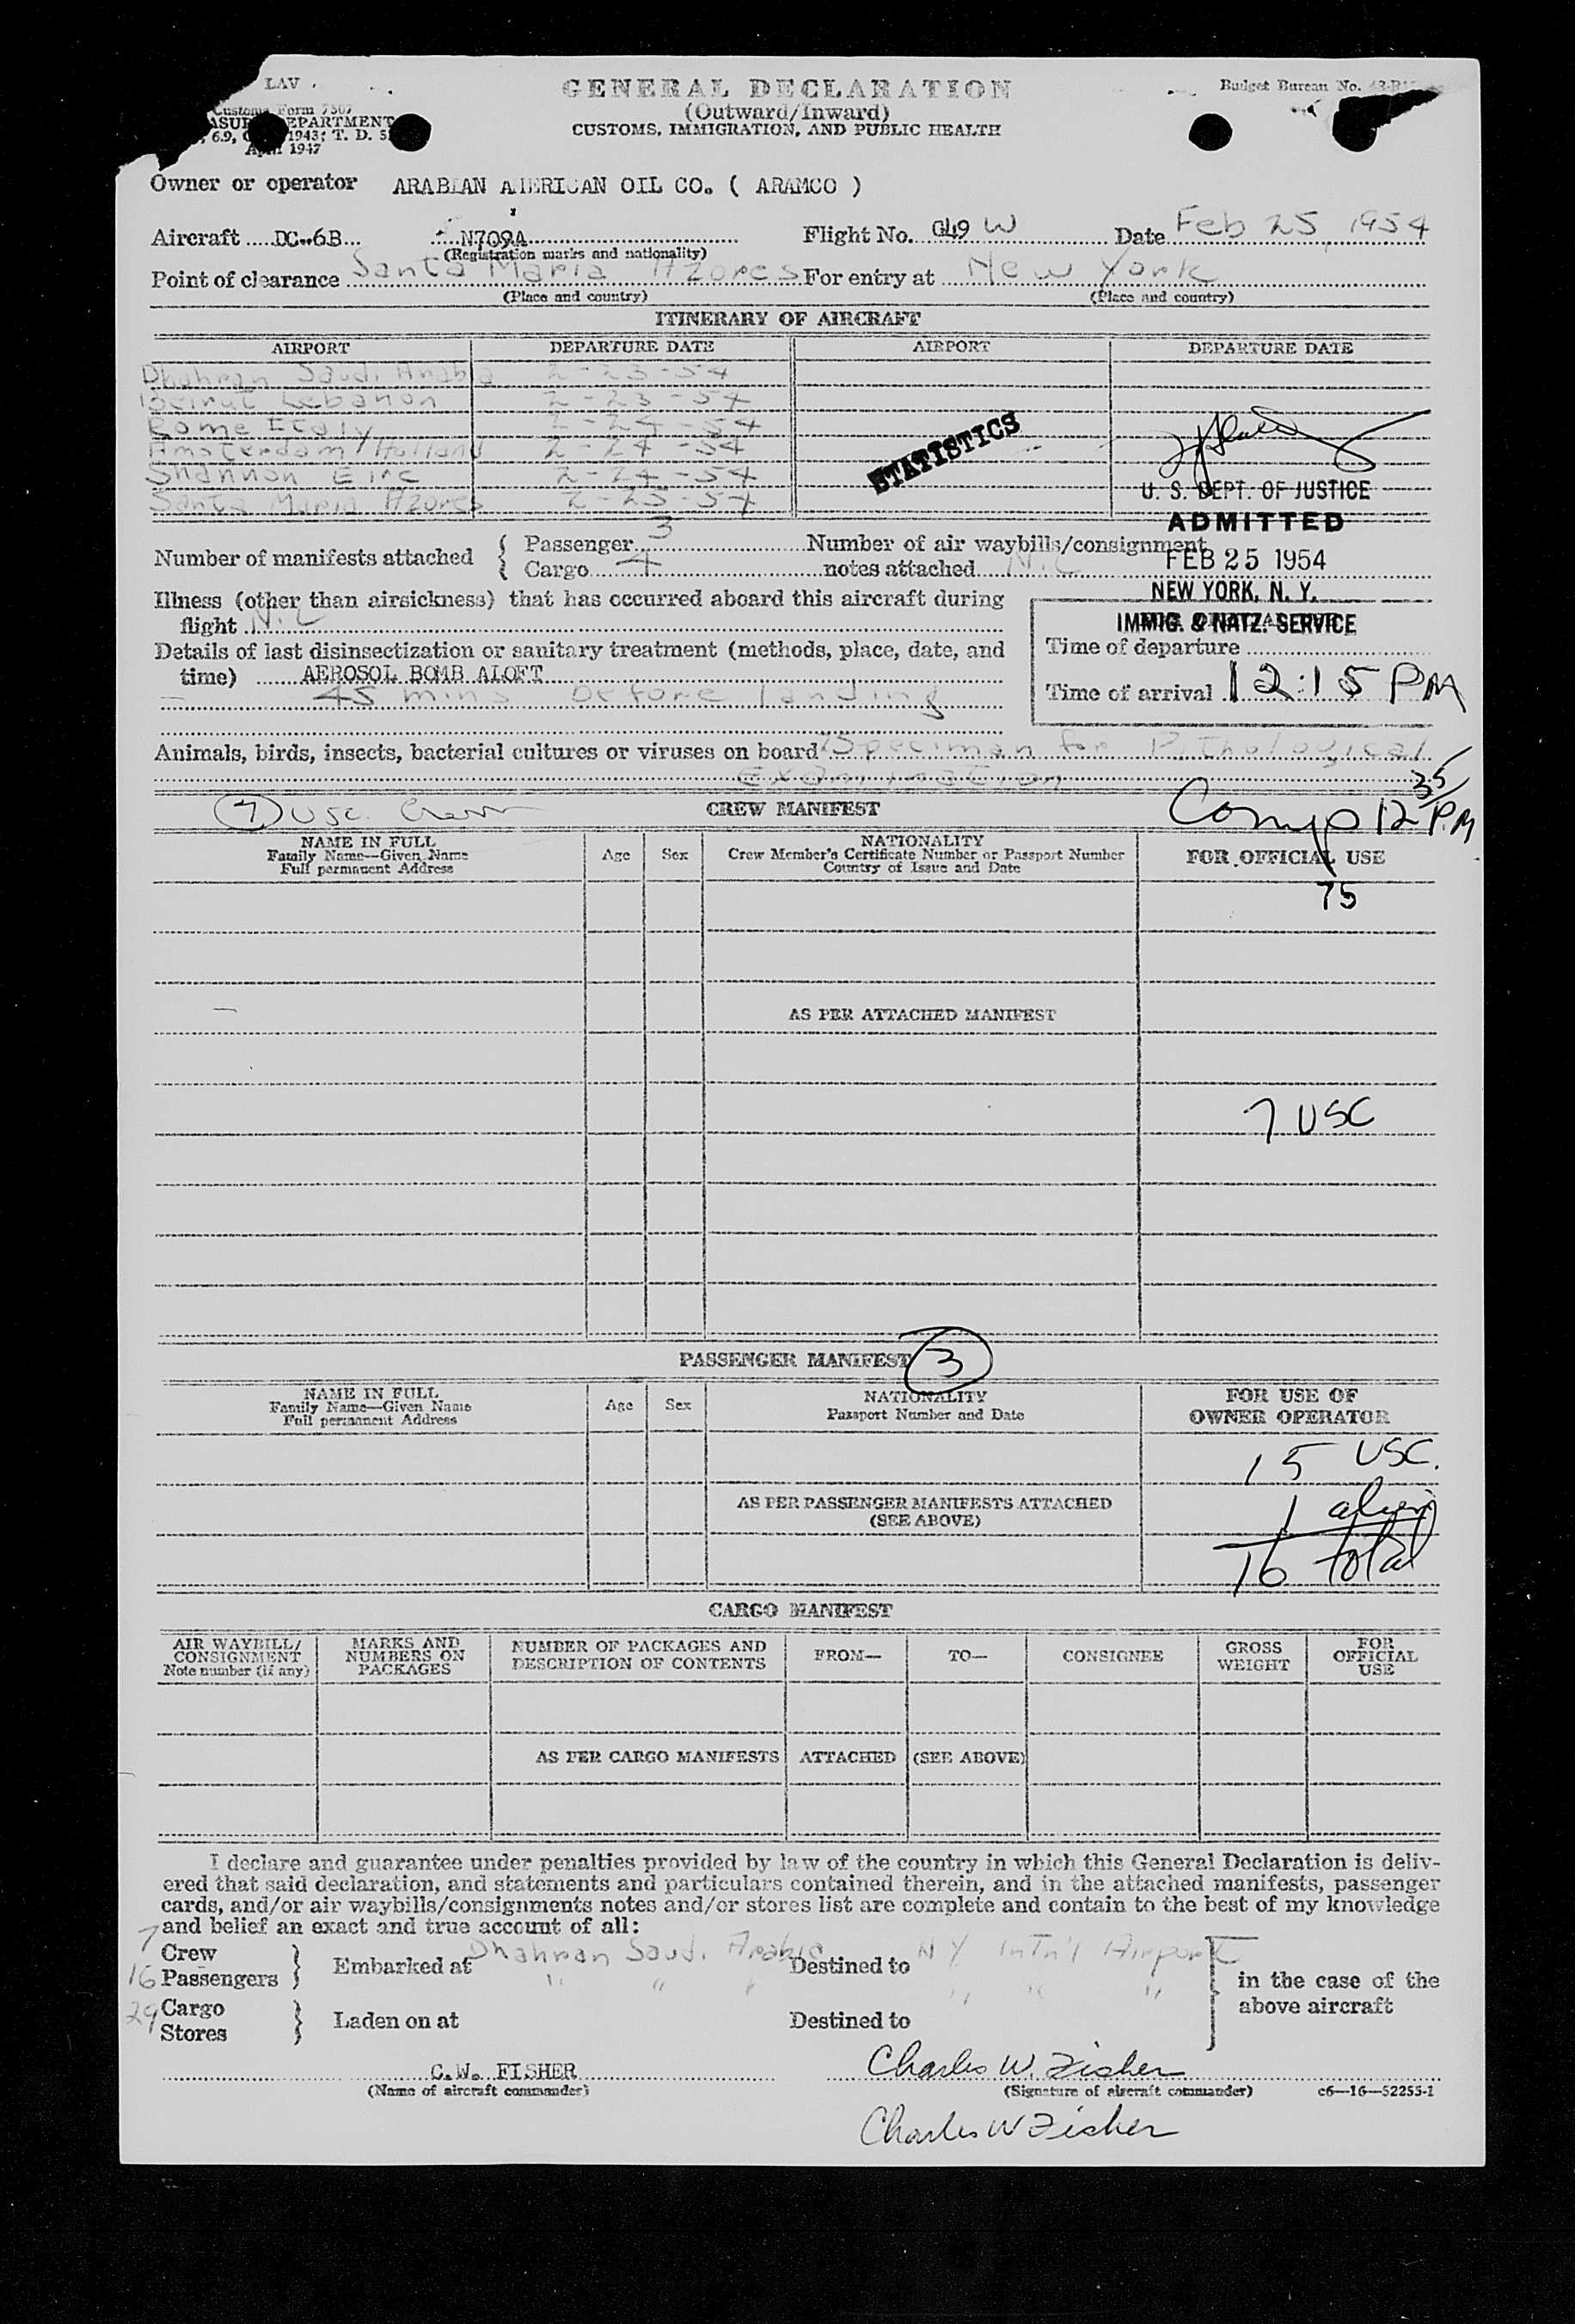 LAV
GENERAL DECLARATION
Budget Bureau No.
(Outward/Inward)
Customs Form 7507
CUSTOMS, IMMIGRATION, AND PUBLIC HEALTH
1943; T. D.
1947
Owner or operator ARABIAN AMERICAN OIL CO. ( ARAMCO )
Aircraft DC-6B N709A Flight No. G49 W Date Feb 25, 1954
(Registration marks and nationality)
Point of clearance Santa Maria Azores For entry at New York
(Place and country) (Place and country)
ITINERARY OF AIRCRAFT
AIRPORT DEPARTURE DATE AIRPORT DEPARTURE DATE
Dhahran Saudi Arabia 2-23-54
Beirut Lebanon 2-23-54
Rome Italy 2-24-54
Amsterdam/Holland 2-24-54
STATISTICS
Shannon Eire 2-24-54
Santa Maria Azores 2-25-54
U. S. DEPT. OF JUSTICE
ADMITTED
FEB 25 1954
NEW YORK, N. Y.
IMMIG. & NATZ. SERVICE
Number of manifests attached { Passenger 3 Number of air waybills/consignment
Cargo 4 notes attached Nil
Illness (other than airsickness) that has occurred aboard this aircraft during
flight Nil
Details of last disinsectization or sanitary treatment (methods, place, date, and
time) AEROSOL BOMB ALOFT
45 mins before landing
Time of departure
Time of arrival 12:15 PM
Animals, birds, insects, bacterial cultures or viruses on board Speciman for Pithological
Examination
(7) USC. Crew CREW MANIFEST Comp 12 35/P.M
NAME IN FULL
Family Name—Given Name
Full permanent Address
Age Sex
NATIONALITY
Crew Member's Certificate Number or Passport Number
Country of Issue and Date
FOR OFFICIAL USE
75
AS PER ATTACHED MANIFEST
7 USC
PASSENGER MANIFEST 3
NAME IN FULL
Family Name—Given Name
Full permanent Address
Age Sex
NATIONALITY
Passport Number and Date
FOR USE OF
OWNER OPERATOR
15 USC.
AS PER PASSENGER MANIFESTS ATTACHED
(SEE ABOVE)
1 alien
16 total
CARGO MANIFEST
AIR WAYBILL/
CONSIGNMENT
Note number (if any)
MARKS AND
NUMBERS ON
PACKAGES
NUMBER OF PACKAGES AND
DESCRIPTION OF CONTENTS
FROM— TO— CONSIGNEE
GROSS
WEIGHT
FOR
OFFICIAL
USE
AS PER CARGO MANIFESTS ATTACHED (SEE ABOVE)
I declare and guarantee under penalties provided by law of the country in which this General Declaration is deliv-
ered that said declaration, and statements and particulars contained therein, and in the attached manifests, passenger
cards, and/or air waybills/consignments notes and/or stores list are complete and contain to the best of my knowledge
and belief an exact and true account of all:
7 Crew
16 Passengers } Embarked at Dhahran Saudi Arabia Destined to N Y Int'n'l Airport
" " " " " "
in the case of the
above aircraft
29 Cargo
Stores } Laden on at Destined to
C.W. FISHER Charles W. Fisher
(Name of aircraft commander) (Signature of aircraft commander) c6—16—52255-1
Charles W Fisher